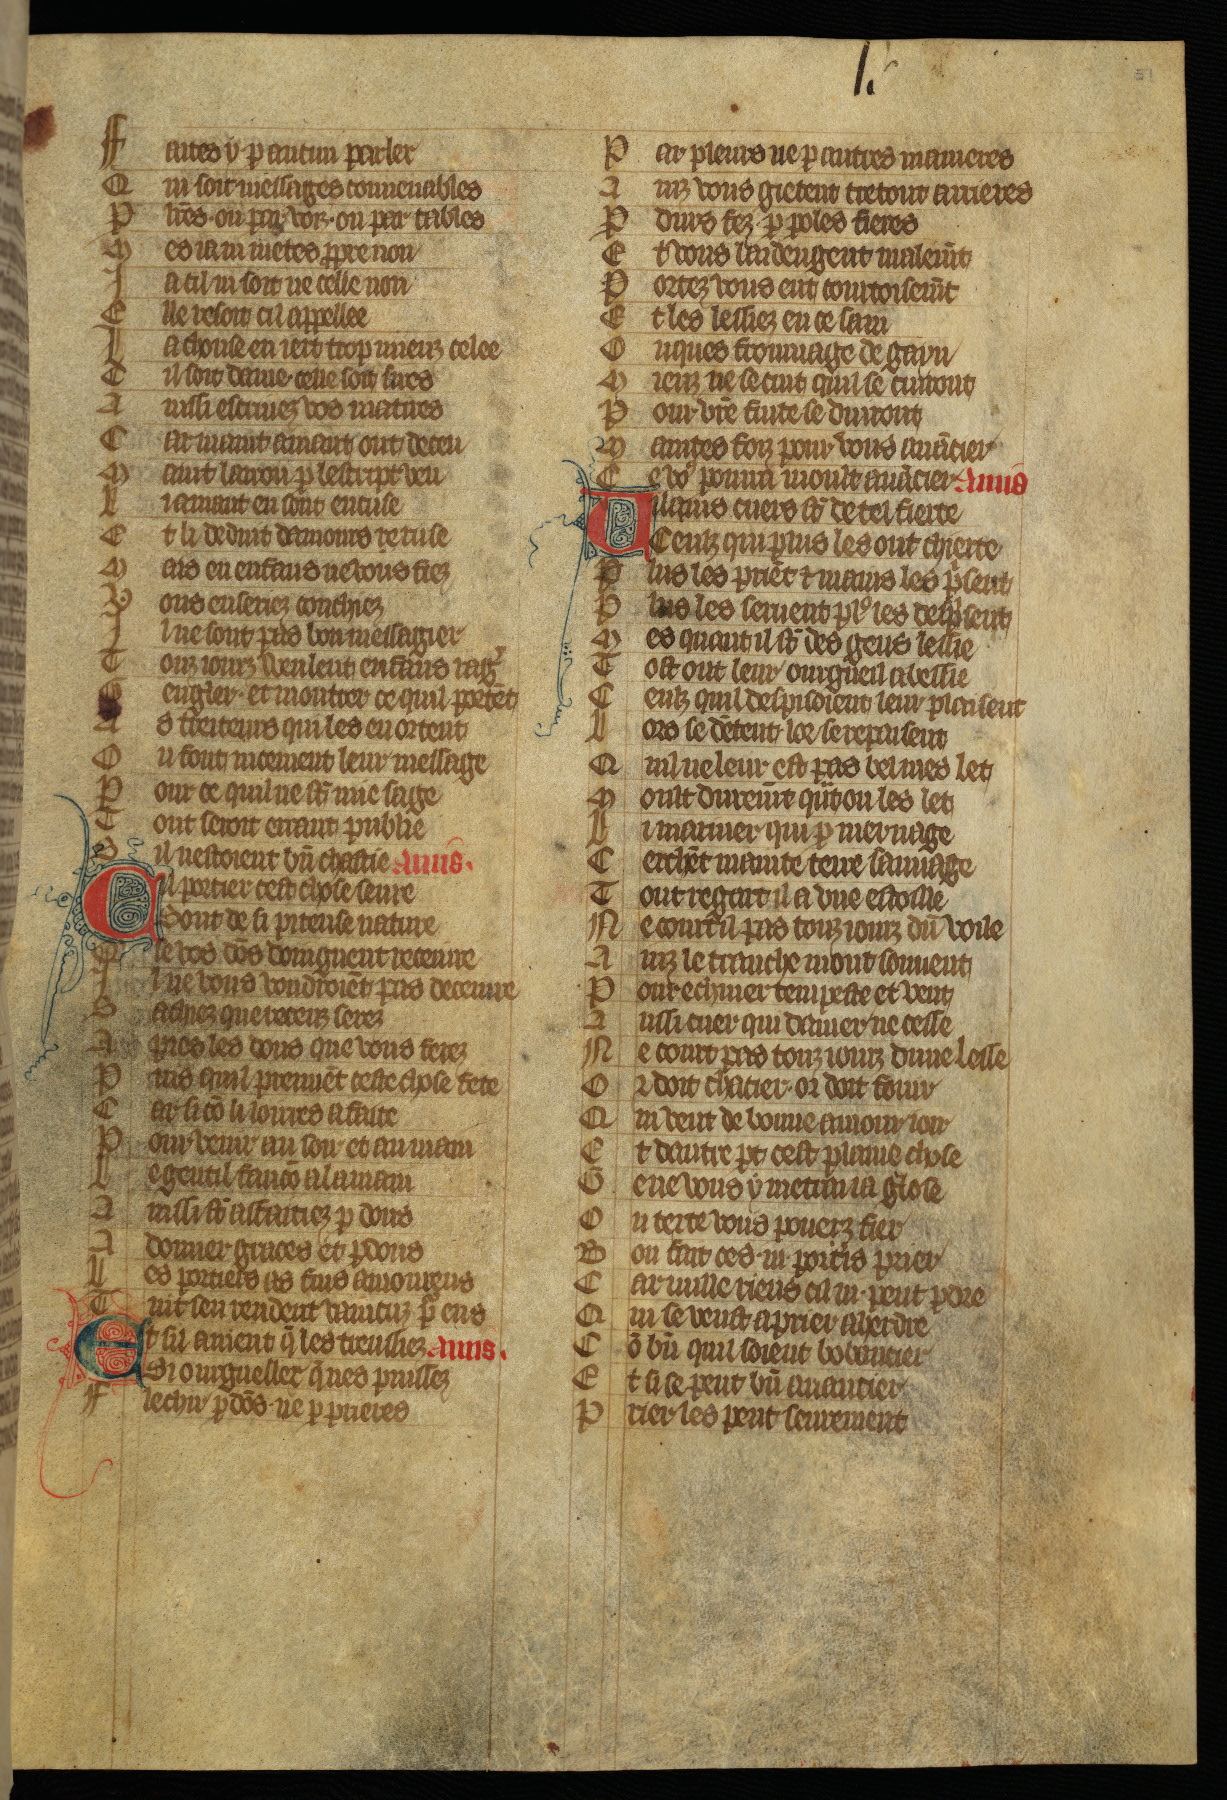 l.
51
F aites y p̱ aucun parler
Q ui soit messages conuenables
P lr̃es ou par voiz ou par tables
M es ia ni metes ꝓpre non
J a cil ni soit ne celle non
E lle resoit cil appellee
L a chouse en iert trop mieuz celee
C il soit dame celle soit sires
A inssi escriuez vos matires
C ar maint amant ont deceu
M aint larron p̱ lescript veu
L i amant en sont encuse
E t li deduit damours recuse
M ais en enfans ne vous fiez
V ous en seriez conchiez
J l ne sont pas bon messagier
T ouz iourz veulent enfans rag̾
G engler et moutrer ce quil portẽt
A s treiteurs qui les en ortent
O u font nicement leur message
P our ce quil ne sõt mie sage
T out seroit errant publie
S il nestoient bñ chastie Amis.
Cil portier cest chose seure
Sont de si piteuse nature
Q e vos dõs doingnent receuire
J l ne vous vondroiẽt pas deceuire
S achiez que receuz serez
A pres les dons que vous ferez
P uis quil prennẽt ceste chose fete
C ar si cõ li loirres afaite
P our venir au soir et au main
L e gentil faucõ a la main
A inssi sõt affaitiez p̱ dons
A donner graces et p̱dons
L es portiers as fins amoureus
T uit sen rendent vaincuz p̱ eus
Et sil auient q̃ les treussiez Amis.
Si ourguelleẽ q̃ nes puissez
F lechir p̱ dõs ne p̱ prieres
P ar pleurs ne p̱ autres manieres
A inz vous gietent tretout arrieres
P durs fez p̱ poles fieres
E t vous laidengent malemẽt
P ortez vous ent courtoisemẽt
E t les lessiez en ce sain
O nques froumage de gayn
M ieuz ne se cuit quil se cuitout
P our vr̃e fuite se duirout
M aintes foiz pour vous auãcier
C e vo⁹ pourra moult auãcier Amis
Uilains cuers sõt de tel fierte
Ceulz qui plus les ont chierte
P lus les priẽt ⁊ mains les p̃sent
P lus les seruent pl⁹ les desp̃sent
M es quant il sõt des gens lessie
T ost ont leur ourgueil abessie
C eulz quil despisoient leur plaisent
L ors se dõtent lor se repaisent
Q uil ne leur est pas bel mes let
M oult duremẽt q̃nt on les let
L i marinier qui p̱ mer nage
C erchẽt mainte terre sauuage
T out regart il a vne estoille
N e court il pas touz iourz dũ voile
A inz le tranche mout souuent
P our echiuer tempeste et vent
A ussi cuer qui damer ne cesse
N e court pas touz iourz dune lesse
O r doit chacier or doit fouir
Q ui veut de bonne amour ioir
E t dautre p̱t cest plaine chose
G e ne vous y metrai ia glose
O u texte vous pouerz fier
B on fait ces iii portĩs prier
C ar nulle riens cil ni peut p̱dre
Q ui se veust a prier aherdre
C õ bñ quil soient bobancier
E t si se peut bñ auancier
P rier les peut seurement